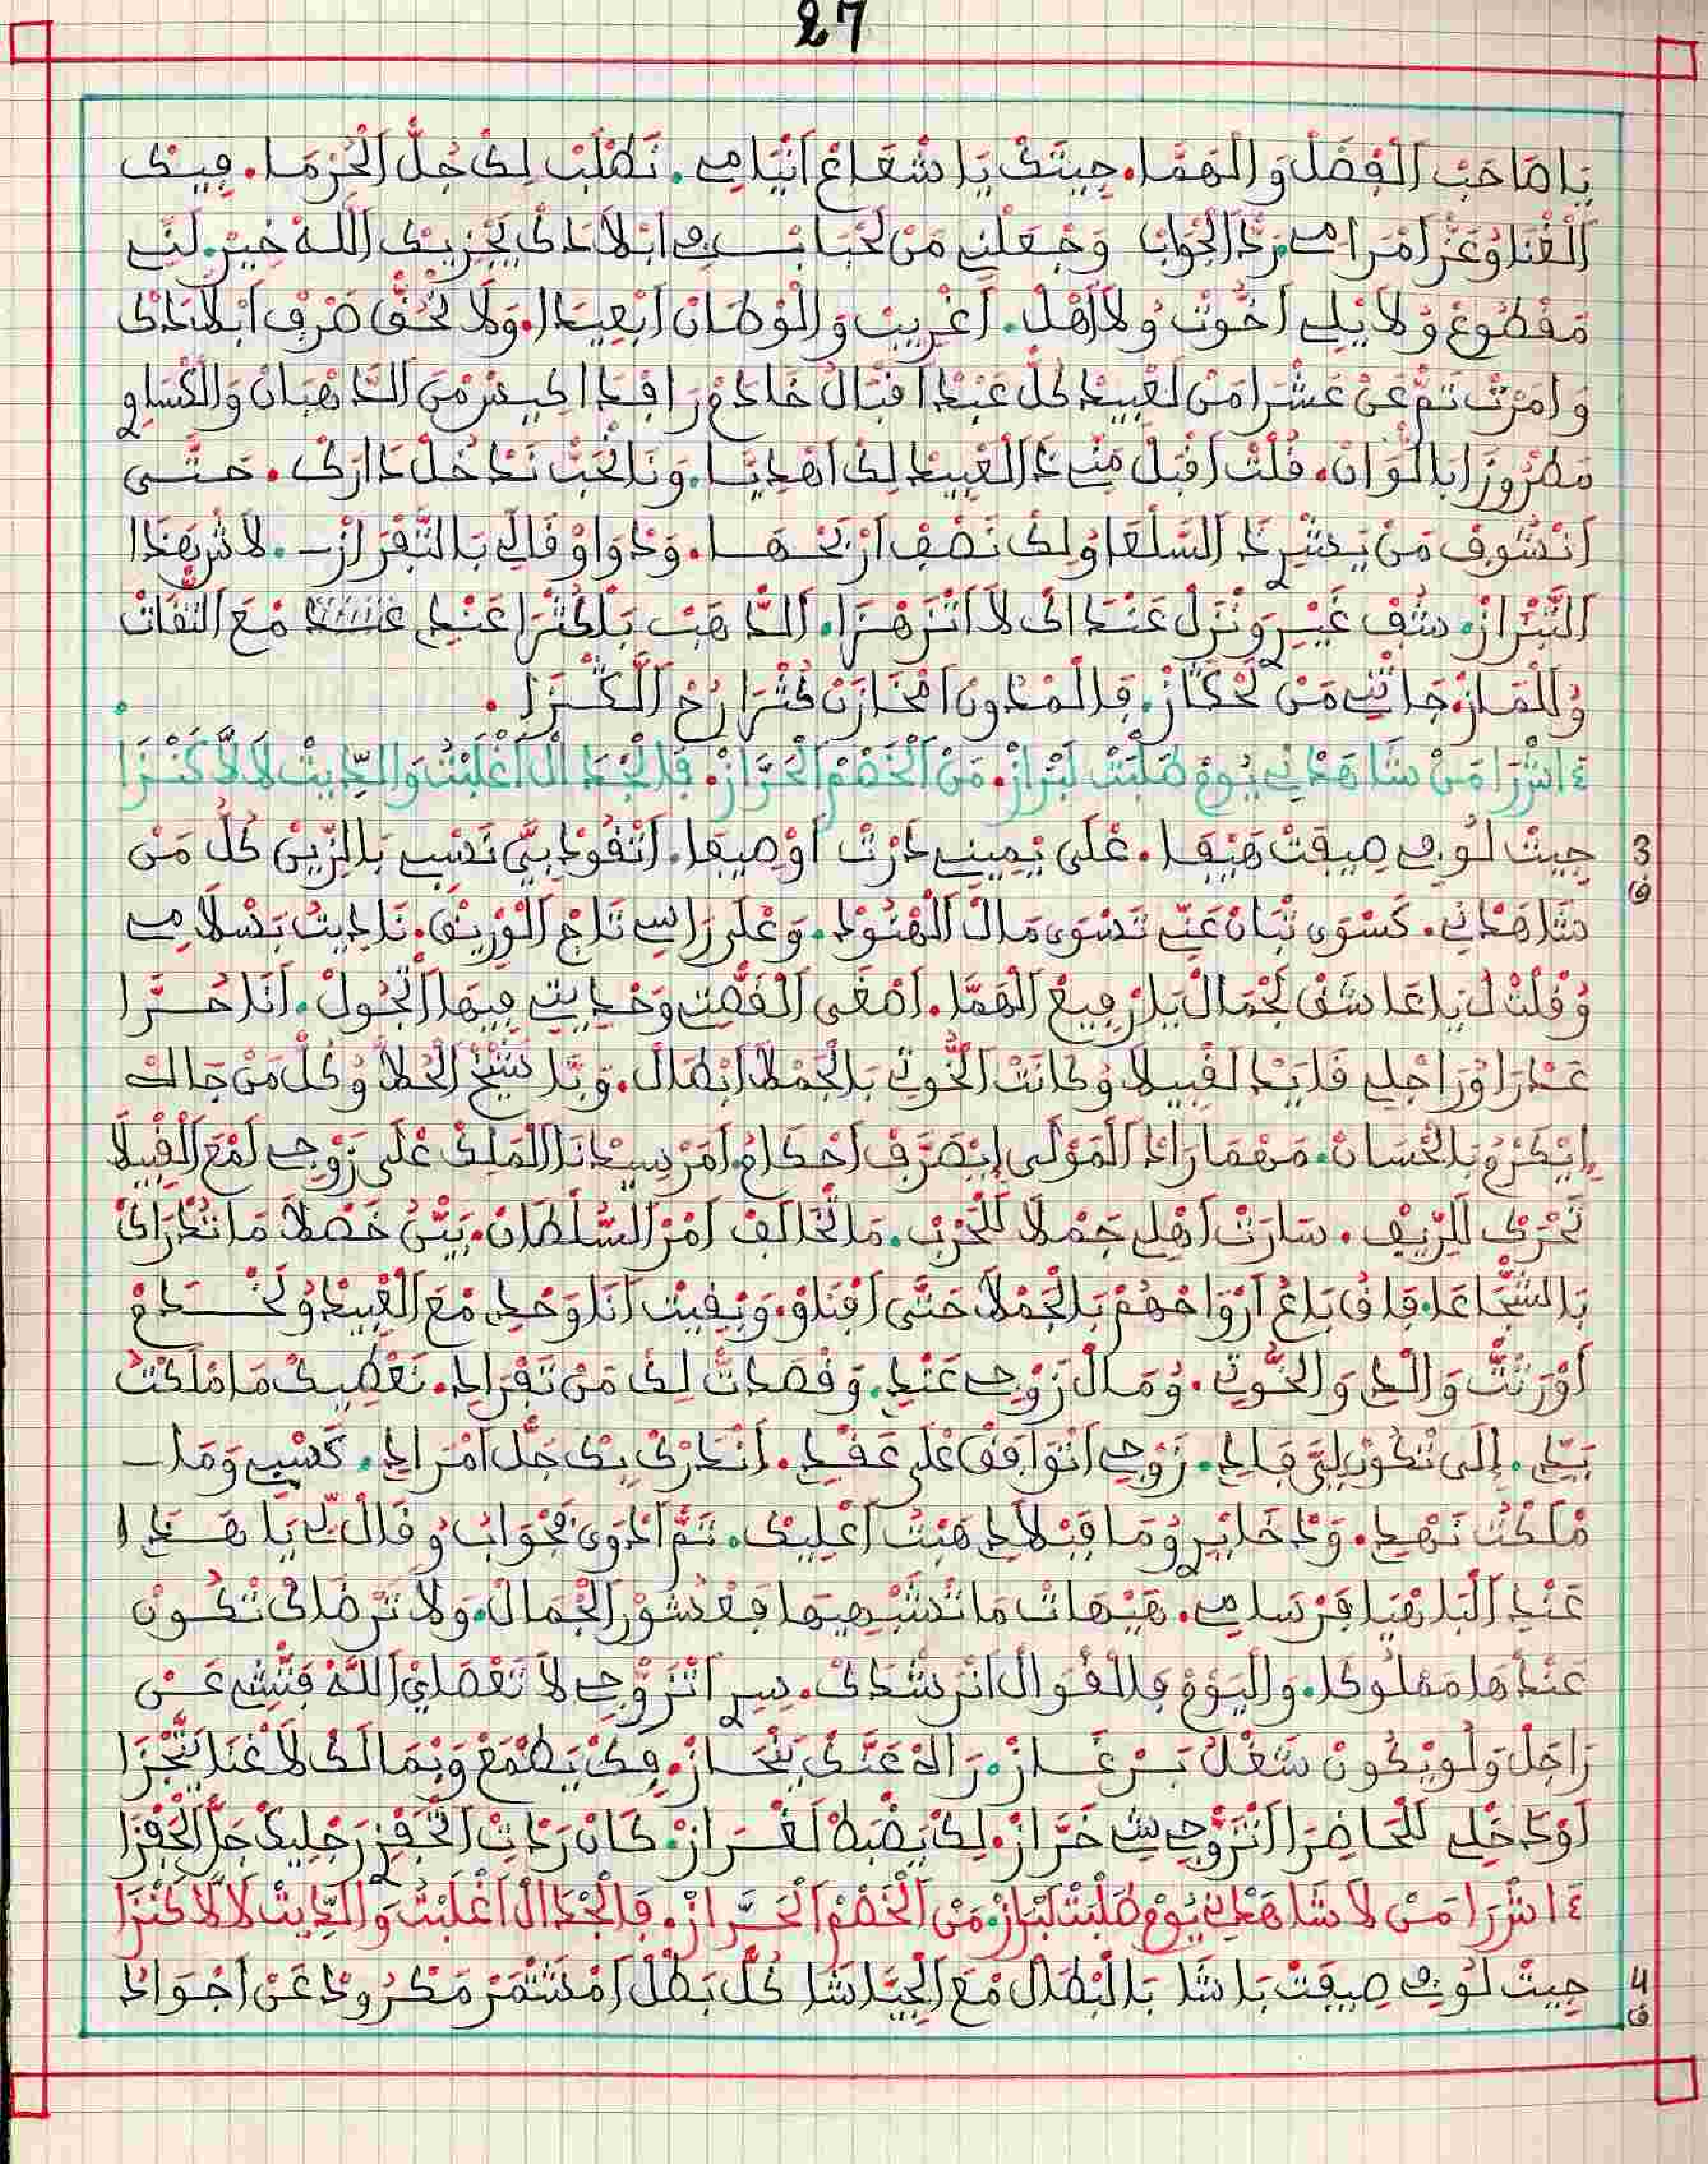 27
يا صاحب الفضل والهما. جيتك يا شفاع أنيامي. نطلب لك جل الحزما. فيك
الغنا وعز امرامي. رد الجواب وجعلني من لحباب في ابلادك يجزيك الله خير. لني
مقطوع ولا يلي أخوت ولا أهل. أغريب والوطان أبعيدا. ولا نحق صرف ابلادك
وامرت تم عن عشرا من لعبيد كل عبد اقبال خادم رافدا من الذهبان والكساوي
مطروزا بالوان. قلت اقبل مني ذا العبيد لك اهديا. ونا نحب ندخل دارك. حتى
انشوف من يشري ذ السلعا ولك نصف اربحها. ودوا وقالي بالتفراز. لاش هذا
التبراز. شف غيري ونزل عندك لا اتزهزا. الذهب بالكثرا عندي مع النفات
والماز جاتني من لحكاز. فالمدون امخازن كثرا رخ الكنزا.
اشرا من شاهدني يوم طلبت لبراز. من الخصم الحراز. فالجدال اغلبت والديت لالا كنزا
3
جيت لو في صيفت هيفا. على يميني درت اوصيفا. اتقود بي تسب بالزين كل من
ف
شاهدني. كسوى تبان عني تسوى مال الهنود. وعلى راسي تاج الوريق. ناديت بسلامي
وقلت ل يا عاشق لجمال يا رفيع الهما. اصغى القصت وحديتي فيها اتجول. أنا حرا
عدرا وراجلي قايد لقبيلا وكانت الخوتي بالجملا ابطال. وبا شيخ الحلا وكل من جاك
إيكرو بالحسان. مهما راد المولى إيصرف احكام أمر سيدنا الملك على زوجي لمع القبيلا
تحرك للريف. سارت أهلي جملا للحرب. ما تخالف أمر السلطان. بين خصلا ما تدراك
بالشجاعا. فاق باغ ارواحهم بالجملا حتى افناو. وبقيت أنا وحدي مع العبيد ولخدام
أورثت والدي والخوتي. ومال زوجي عندي. وقصدت لك من تفرادي. نعطيك ما ملكت
يدي. إلى تكون لي فادي. زوجي اتوافق على عقدي. أندرك بك جل امرادي. كسبي وما
ملكت نهدي. ود خايري وما قبلادي هبت أعليك. تم ادوى فجواب وقال لي يا هدا
عند الباهيا فرسامي. هيهات ما تشبهيها فعشور الجمال. ولا ترضاك تكون
عندها مملوكا. واليوم فالقوال انرشدك. سيري اتزوجي لا تعطلي الله فتش عن
راجل ولو يكون شغل برغاز. راه عنك ينحاز. فك يطمع وبمالك لاغنا يتجزا
أوكد خلي للحاضرا اتزوجي شي خراز. لك يضبط لغراز. كان ردات اتحفزي رجليك جل الحفزا
اشرا من لا شاهدني يوم طلبت لبراز. من الخصم الحراز. فالجدال اغلبت والديت لالا كنزا
4
جيت لو في صيفت باشا بالبطال مع الجياشا كل بطل امشمر مكرود عن اجواد
ف